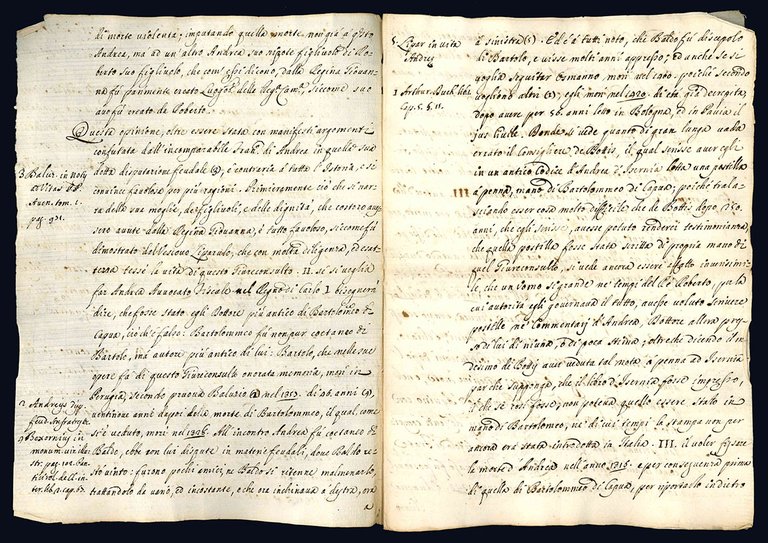 di morte violenta; imputando quella morte non già a questo
Andrea, ma ad un'altro Andrea suo nipote figliuolo di Ro-
berto suo figliuolo, che com'essi dicono, dalla Regina Giovan-
na fù primamente creato
suo avo fù creato da Roberto.
Questa opinione, oltre essere stata con manifesti argomenti
confutata dall'incomparabile Fran. di Andrea in quella sua
dotta disputazione feudale è contraria a tutta l'Istoria, e si
convince favolosa per più ragioni. Primieramente ciò che si nar-
ra della sua moglie, de' figliuoli, e delle dignità, che costoro aves-
sero avute dalla Regina Giovanna, è tutto favoloso, siccome fù
dimostrato dell'istesso Liparulo, che con molta diligenza, ed esat-
tezza tesse la vita di questo Giureconsulto. II. se si voglia
far Andrea Avvocato Fiscale nel Regno di Carlo I. bisognerà
dire, che fosse stato egli Dottore più antico di Bartolomeo di
Capua, ciò ch'è falso: Bartolommeo fù non pur coetaneo di
Bartolo, ma autore più antico di lui: Bartolo, che nelle sue
opere fà di questo Giureconsulto onorata memoria, morì in
Perugia, secondo pruova Baluzio nel 1353. di 46. anni
ventinove anni dopoi della morte di Bartolommeo, il qual, come
s'è veduto, morì nel All'incontro Andrea fù coetaneo di
Baldo, ebbe con lui dispute in materie feudali, dove Baldo re-
stò vinto: furono pochi amici, ne Baldo si ritenne malmenarlo,
trattandolo da vano, ed incostante, e che ora inchinava a destra, ora
a
3 Baluz. in notis
ad Vitas PP.
Aven. tom. 1.
pag.
2 Andreys
feud.
in
monum. viri
pag. 102.
cap. 63.
5. Lipar in vita
Andreę
1 Arthur. Duck lib. 1.
Cap. 5. §. 11.
à sinistra (5). Ed è à tutti noto, che Baldo fù discepolo
di Bartolo, e visse molti anni appresso; ed anche se si
voglia seguitar Ermanno, morì nel 1400. poiché secondo
vogliono altri egli morì nel 1420. di età già decrepita,
dopo avere per 56. anni letto in Bologna, ed in Pavia il
jus Civile. Donde si vede quanto di gran lunga vada
errato il Consigliere de Bottis, il qual scrisse aver egli
in un antico Codice d'Andrea d'Isernia letta una postilla
a penna, mano di Bartolommeo di Capua; poiché trala-
sciando esser cosa molto difficile che de Bottis dopo
anni, che egli scrisse, avesse potuto renderci testimonianza,
che quella postilla fosse stata scritta di propria mano di
quel Giureconsulto, si vede ancora essere inverisimi-
le, che un uomo sì grande ne' tempi del Rè Roberto, per la
cui autorità egli governava il tutto, avesse voluto scrivere
postille ne' Commentarj d'Andrea, Dottore allora
di lui di niuna, ò di poca stima; oltreche dicendo il me-
desimo de Bottis aver veduta tal nota a penna ad Isernia
par che supponga, che il libro d'Isernia fosse impresso,
il che se così fosse, non poteva quello essere stato in
mano di Bartolomeo, ne' di cui tempi la stampa non per
ancora era stata introdotta in Italia. III. il voler fissare
la morte d'Andrea nell'anno 1316. e per conseguenza prima
di quella di Bartolommeo di Capua, per riportarlo indietro
III